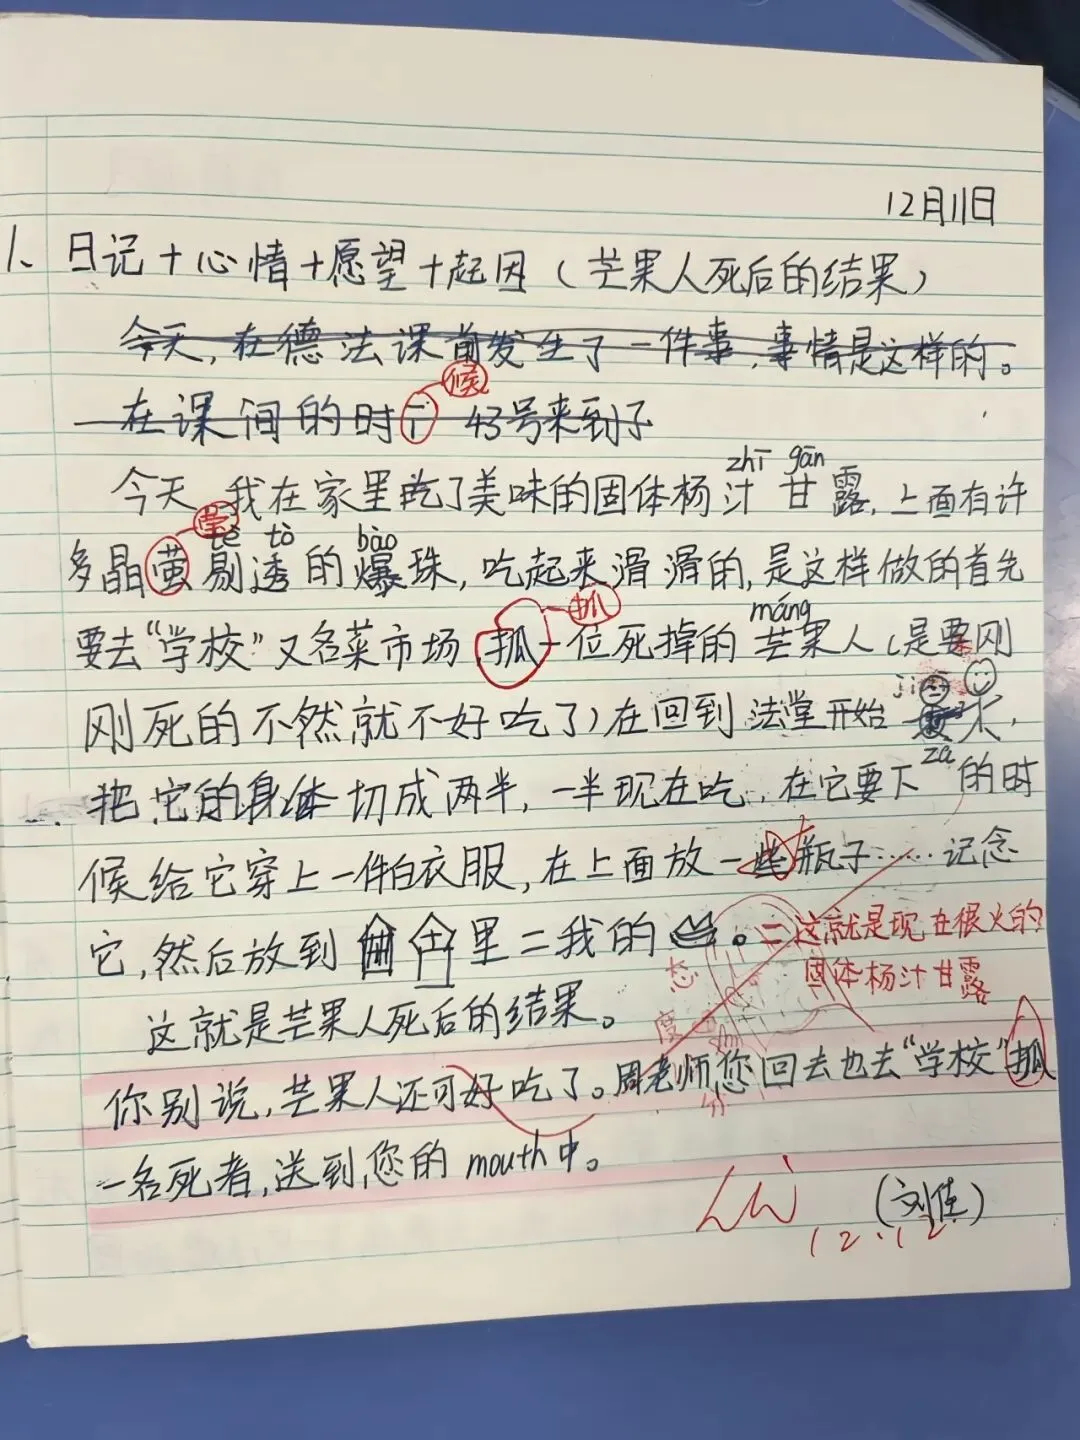 12月11日
1、日记+心情+愿望+起因（芒果人死后的结果）
今天，在德法课前发生了一件事，事情是这样的。
候
在课间的时 43号来到子
zhī gān
今天，我在家里吃了美味的固体杨汁甘露，上面有许
莹 tè tò bào
多晶萤剔透的爆珠，吃起来滑滑的，是这样做的首先
抓 máng
要去“学校”又名菜市场，抓一位死掉的芒果人（是要刚
刚死的不然就不好吃了）在回到法堂开始
za
把它的身体切成两半，一半现在吃，在它要下 的时
候给它穿上一件白衣服，在上面放一些瓶子……记念
它，然后放到 里=我的 。=这就是现在很火的
固体杨汁甘露
态度 分
这就是芒果人死后的结果。
你别说，芒果人还可好吃了。周老师您回去也去“学校”抓
一名死者，送到您的mouth中。
（刘佳）
12.12